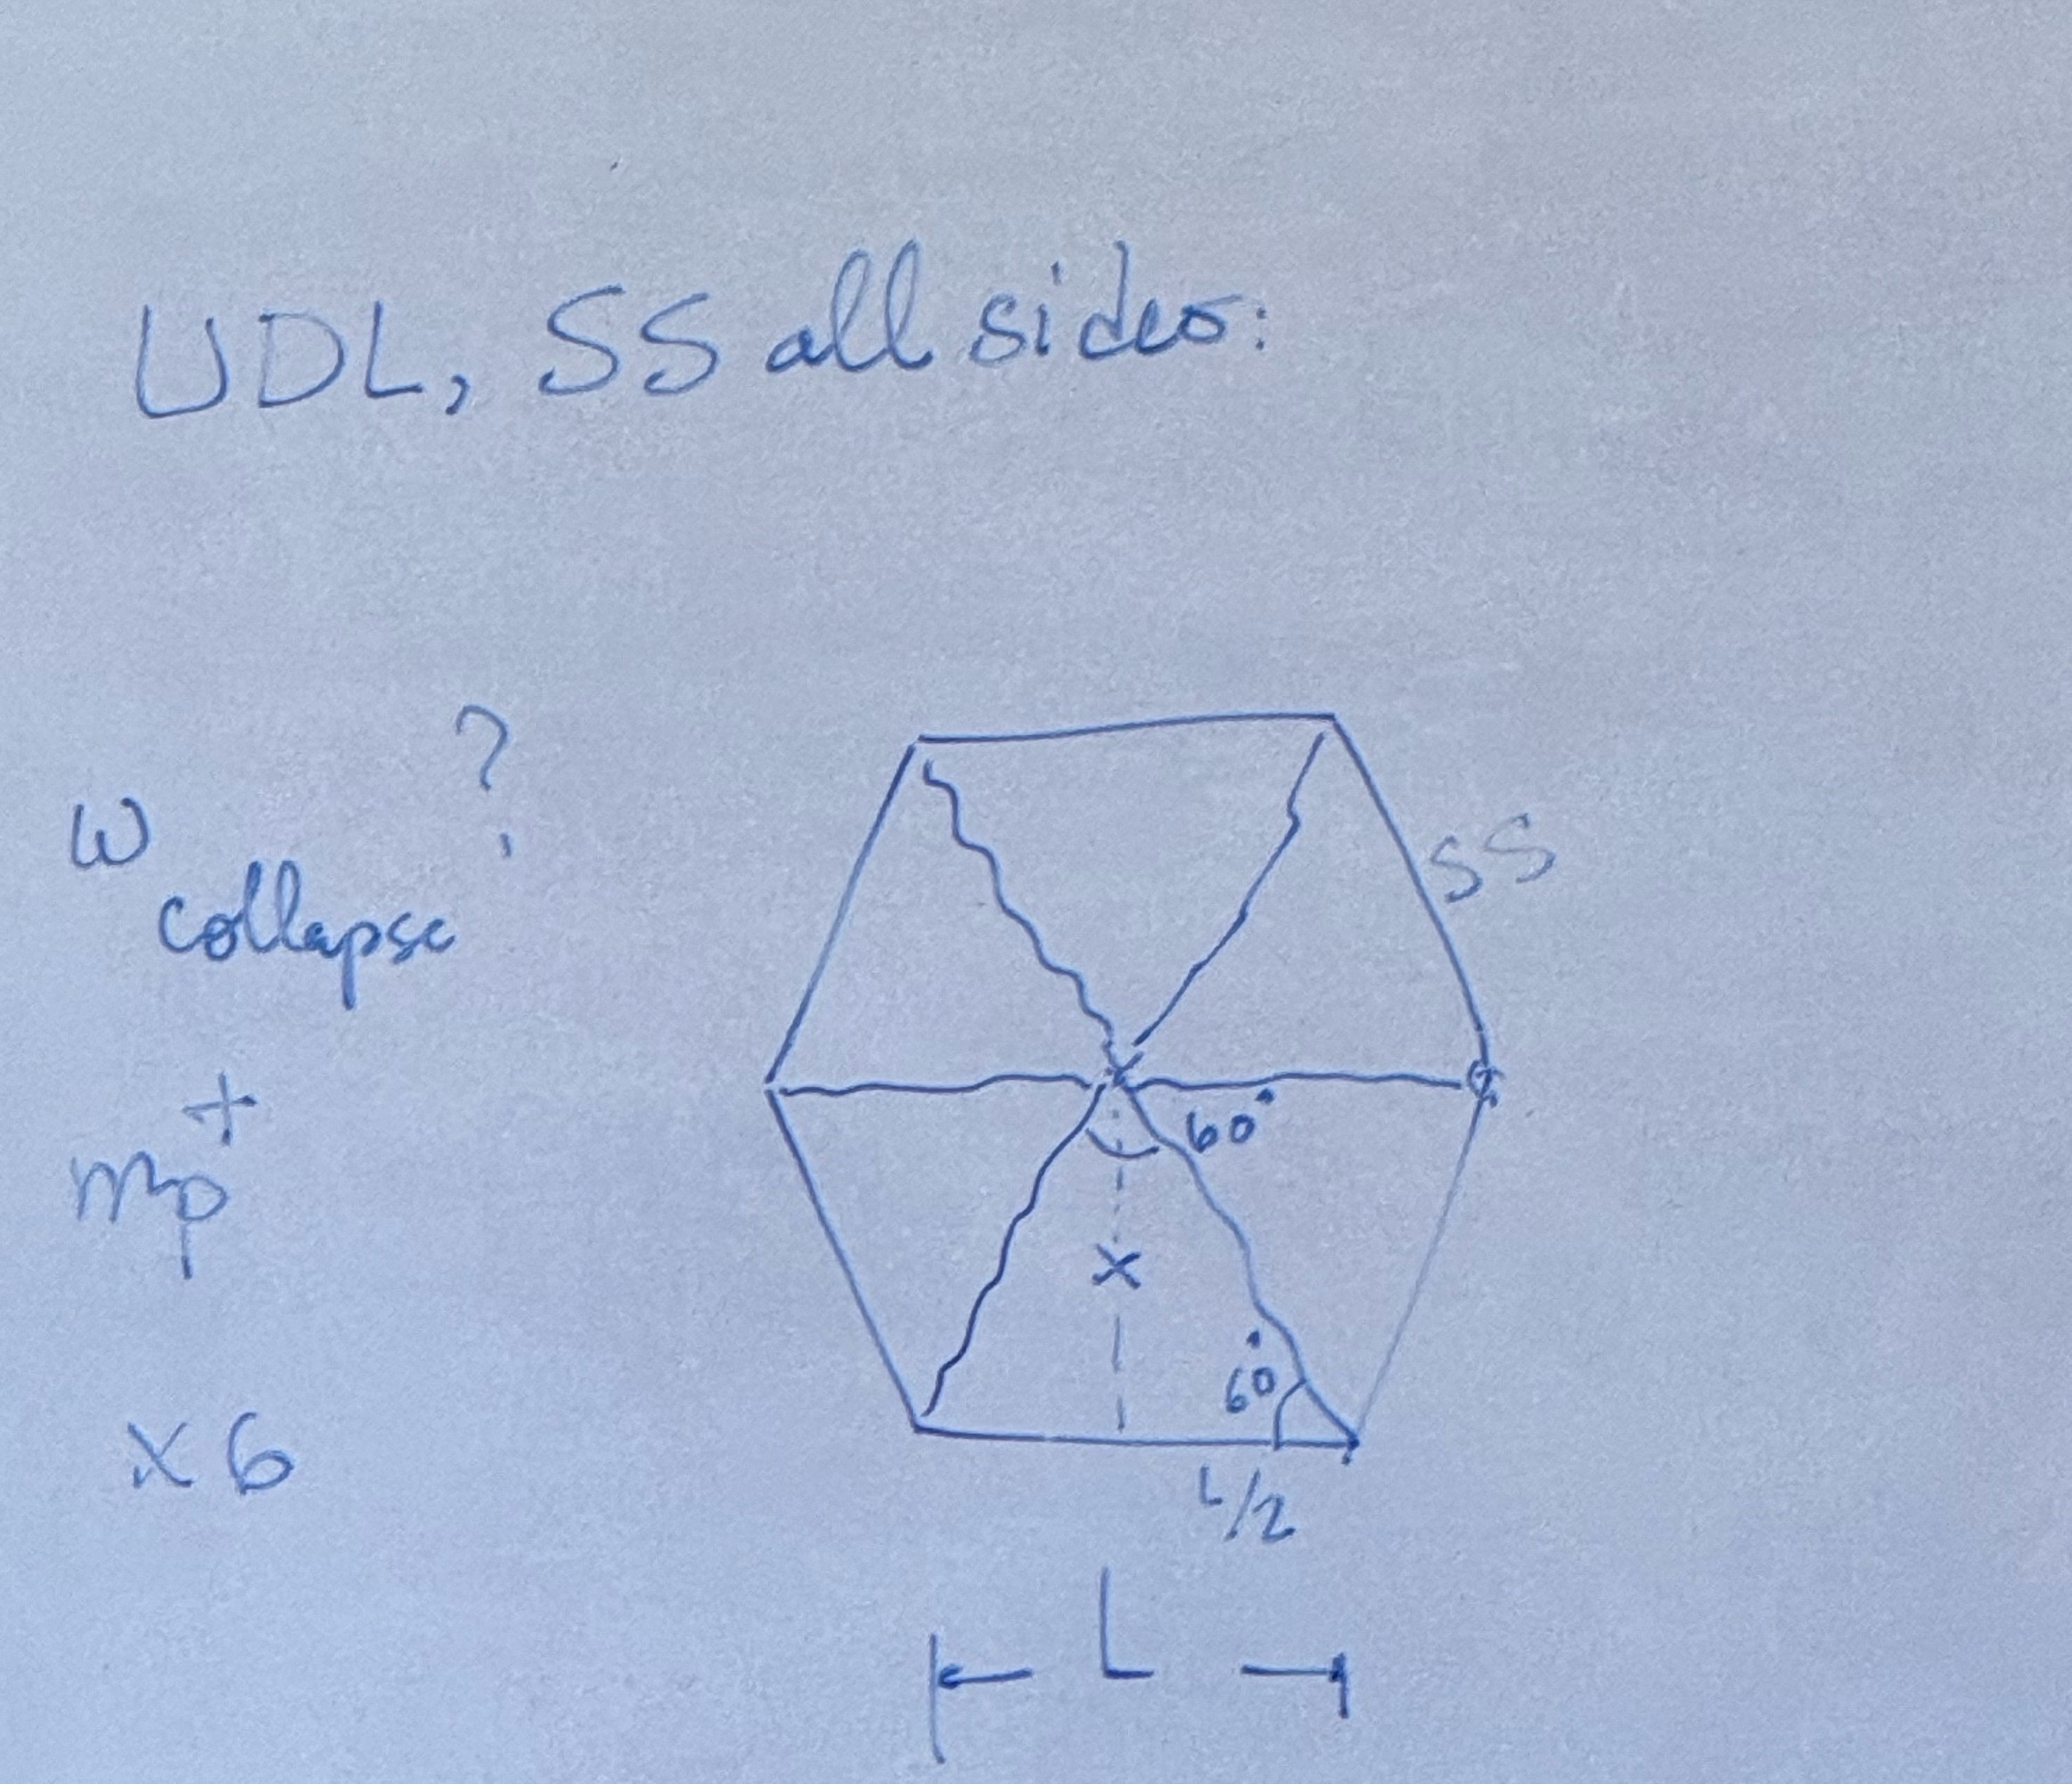 UDL, SS all sides:
ω collapse ?
mp+
x6
SS
60°
x
60°
L/2
L